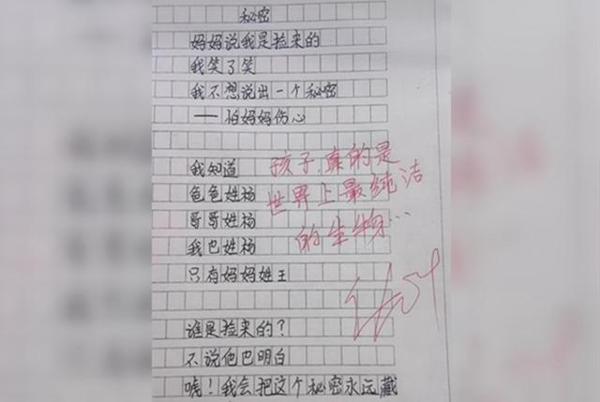 秘密
妈妈说我是捡来的
我笑了笑
我不想说出一个秘密
——怕妈妈伤心
我知道
爸爸姓杨
哥哥姓杨
我巴姓杨
只有妈妈姓王
谁是捡来的?
不说他巴明白
!我会把这个秘密永远藏
孩子,真的是
世界上最纯洁
的生物…